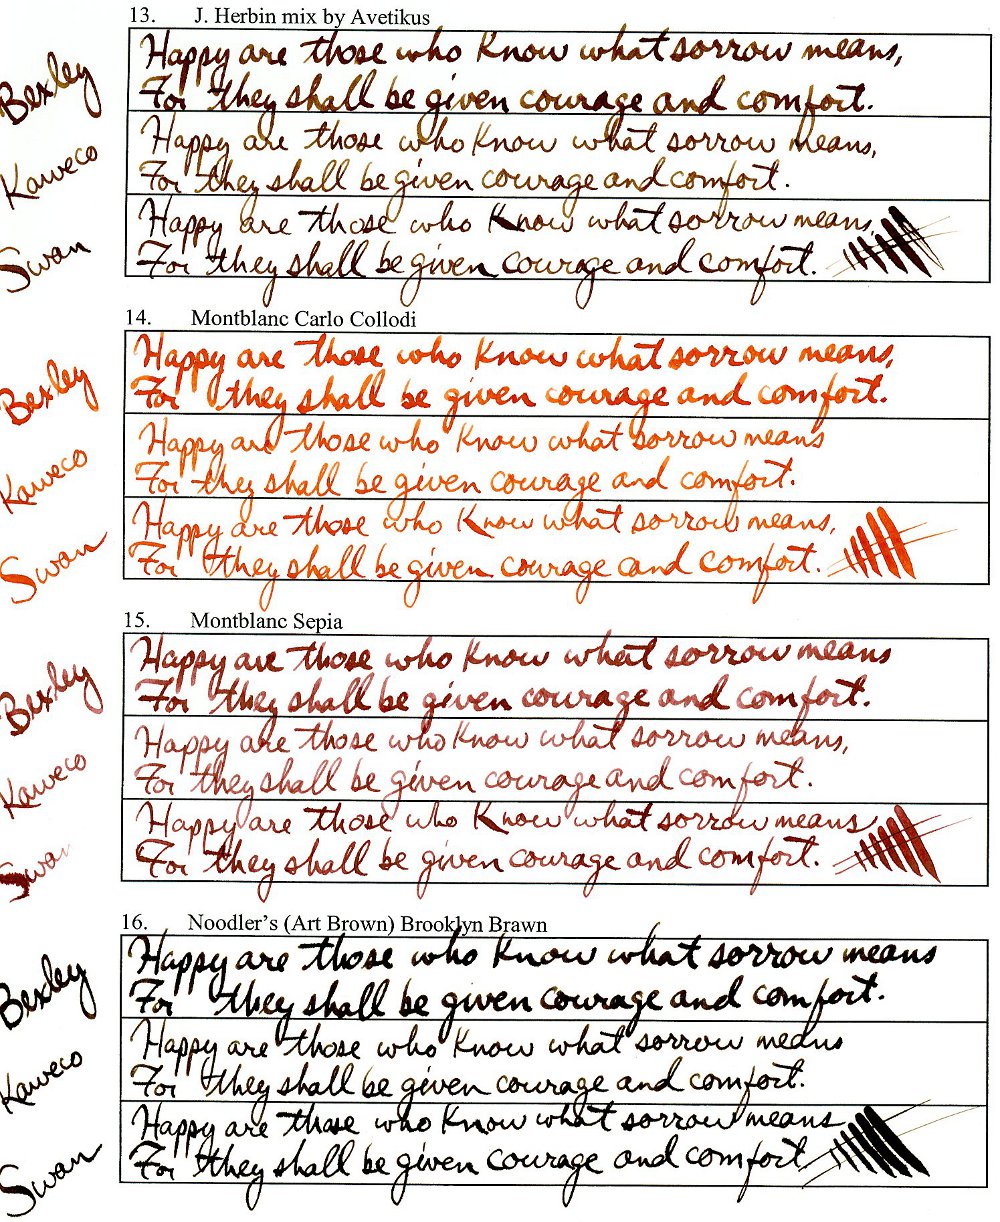 13. J. Herbin mix by Avetikus
Bexley
Happy are those who know what sorrow means,
For they shall be given courage and comfort.
Kaweco
Happy are those who know what sorrow means,
For they shall be given courage and comfort.
Swan
Happy are those who know what sorrow means,
For they shall be given courage and comfort.
14. Montblanc Carlo Collodi
Bexley
Happy are those who know what sorrow means,
For they shall be given courage and comfort.
Kaweco
Happy are those who know what sorrow means
For they shall be given courage and comfort.
Swan
Happy are those who know what sorrow means,
For they shall be given courage and comfort.
15. Montblanc Sepia
Bexley
Happy are those who know what sorrow means
For they shall be given courage and comfort.
Kaweco
Happy are those who know what sorrow means,
For they shall be given courage and comfort.
Swan
Happy are those who know what sorrow means
For they shall be given courage and comfort.
16. Noodler's (Art Brown) Brooklyn Brawn
Bexley
Happy are those who know what sorrow means
For they shall be given courage and comfort.
Kaweco
Happy are those who know what sorrow means
For they shall be given courage and comfort.
Swan
Happy are those who know what sorrow means
For they shall be given courage and comfort.